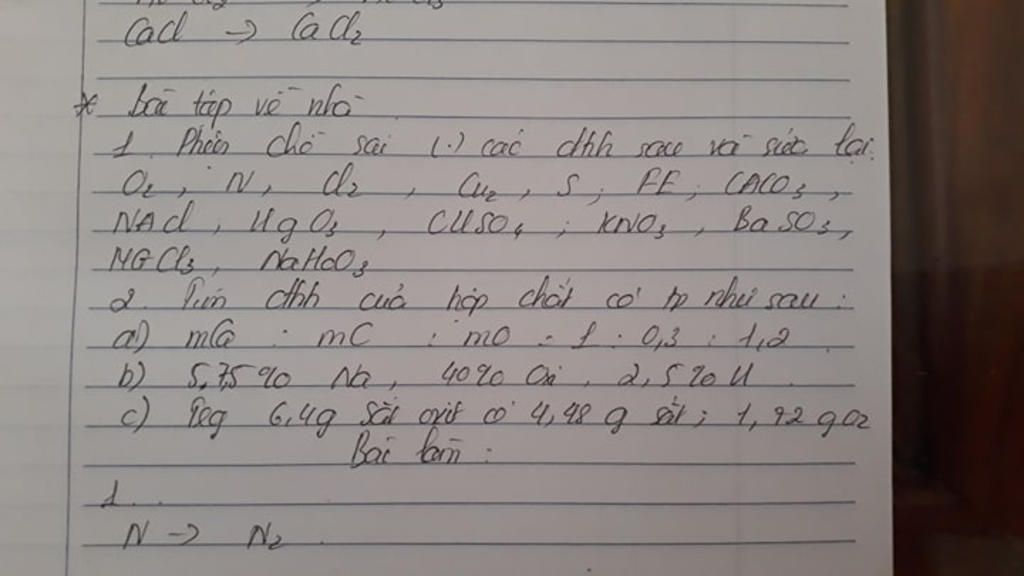 CaCl → CaCl2
* bài tập về nhà
1. Phân chỗ sai (.) các dthh sau và sửa lại:
O2, N, Cl2, Cu2, S, FE, CACO3,
NACl, HgO3, CUSO4; KNO3, BaSO3,
MGCl3, NaHCO3
2. Tìm dthh của hợp chất có tp như sau:
a) mCa : mC : mO = 1 : 0,3 : 1,2
b) 5,75% Na, 40% Oxi, 2,5% H
c) 6,4g sắt oxit có 4,48 g sắt; 1,92 g O2
Bài làm:
1.
N → N2